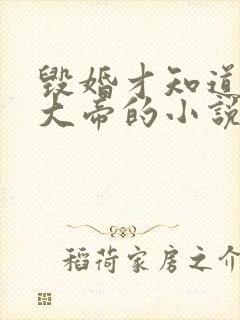 毁婚才知道
大帝的小說
稻荷家房之介